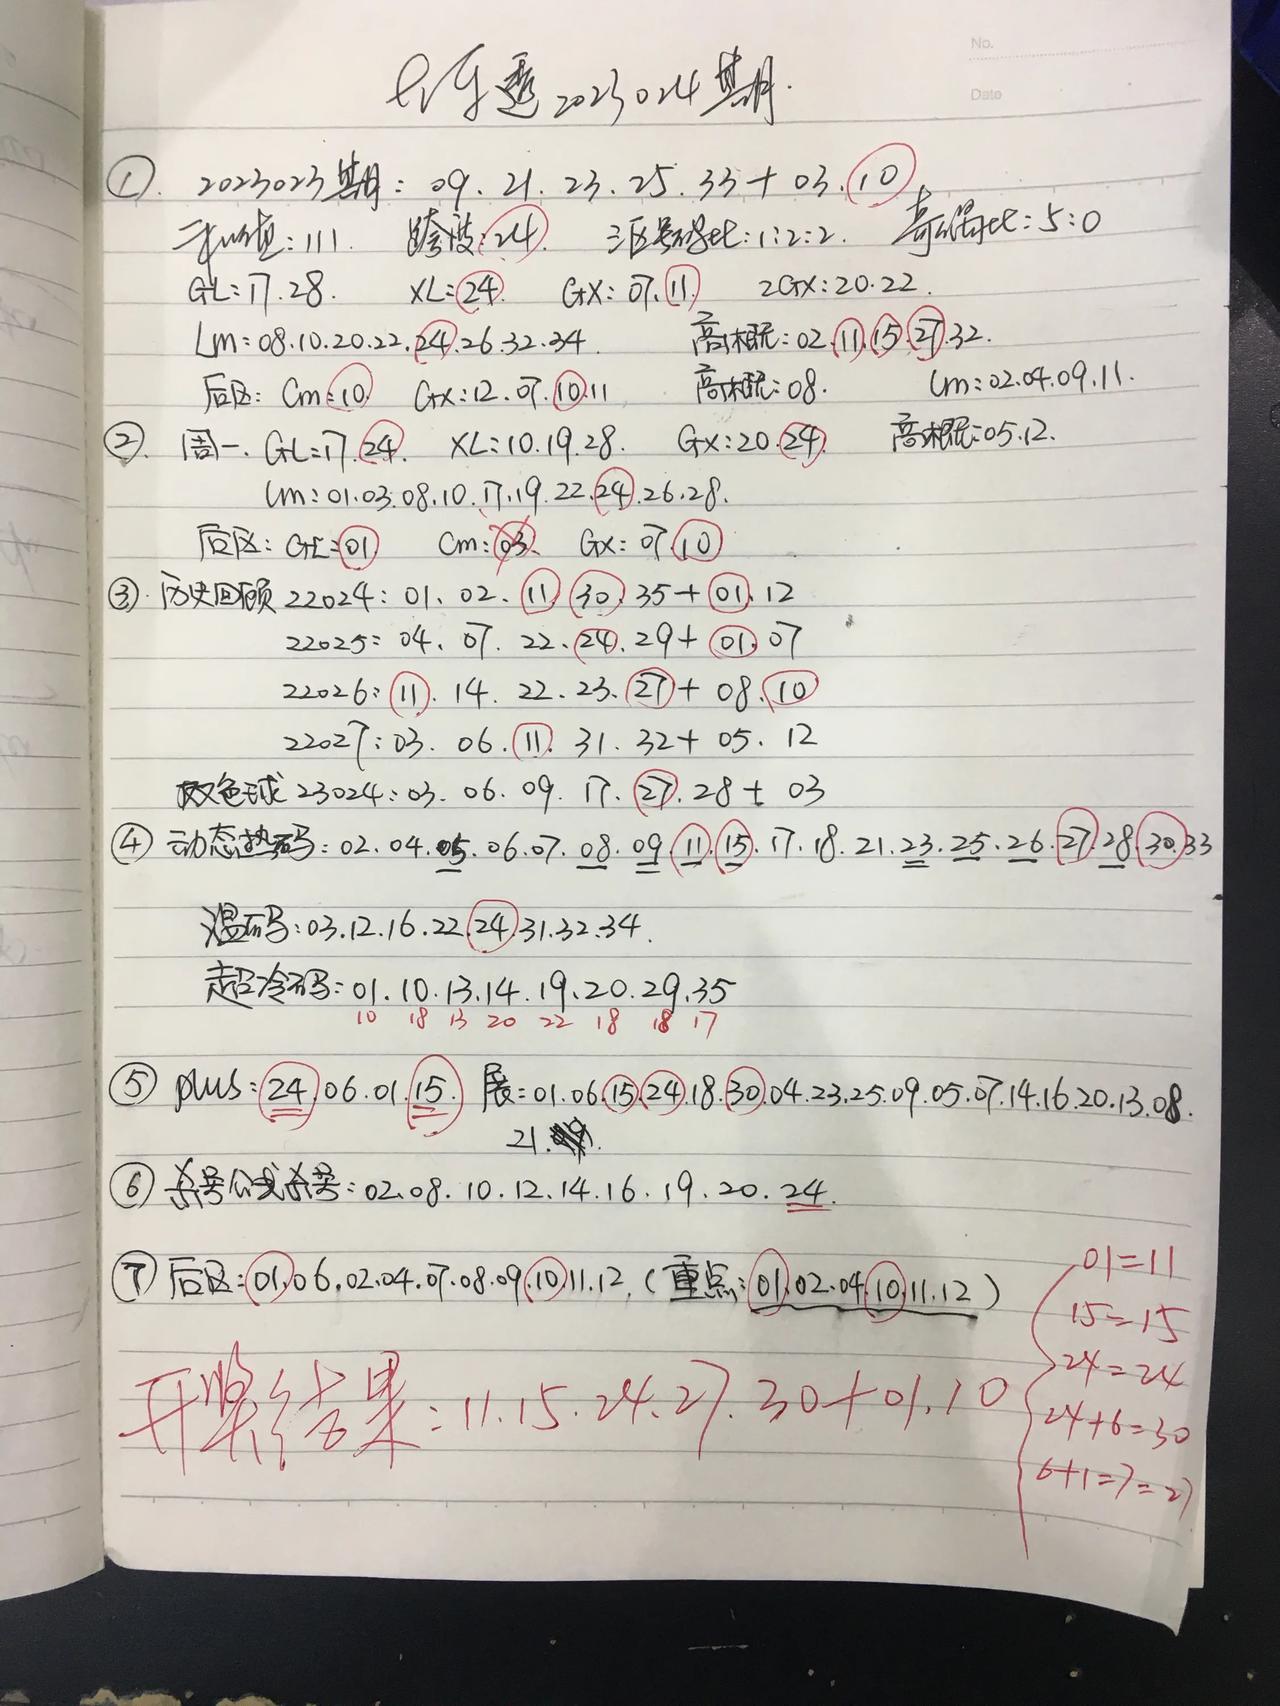 No.
Date
大乐透2023024期.
①. 2023023期: 09. 21. 23. 25. 33+03. 10
和值:111. 跨度:24. 三区号码比:1:2:2. 奇偶比:5:0
GL:17.28. XL:24. GX:07.11. 2GX:20.22.
Lm:08.10.20.22.24.26.32.34. 高概:02.11.15.27.32.
后区: Cm:10. GX:12.07.10.11 高概:08. Lm:02.04.09.11.
②. 周一. GL:17.24. XL:10.19.28. GX:20.24. 高概:05.12.
Lm:01.03.08.10.17.19.22.24.26.28.
后区: GL:01 Cm:03. GX:07.10
③. 历史回顾 22024: 01. 02. 11. 30. 35+01. 12
22025: 04. 07. 22. 24. 29+01. 07
22026: 11. 14. 22. 23. 27+08. 10
22027: 03. 06. 11. 31. 32+05. 12
双色球 23024: 03. 06. 09. 17. 27. 28+03
④ 动态热码: 02.04.05.06.07.08.09.11.15.17.18.21.23.25.26.27.28.30.33
温码:03.12.16.22.24.31.32.34.
超冷码:01.10.13.14.19.20.29.35
10 18 13 20 22 18 18 17
⑤ plus: 24.06.01.15. 展:01.06.15.24.18.30.04.23.25.09.05.07.14.16.20.13.08.
21.
⑥ 杀号公式杀号: 02.08.10.12.14.16.19.20.24.
⑦ 后区: 01.06.02.04.07.08.09.10.11.12. (重点: 01.02.04.10.11.12)
开奖结果: 11.15.24.27.30+01.10
01=11
15=15
24=24
24+6=30
6+1=7=27